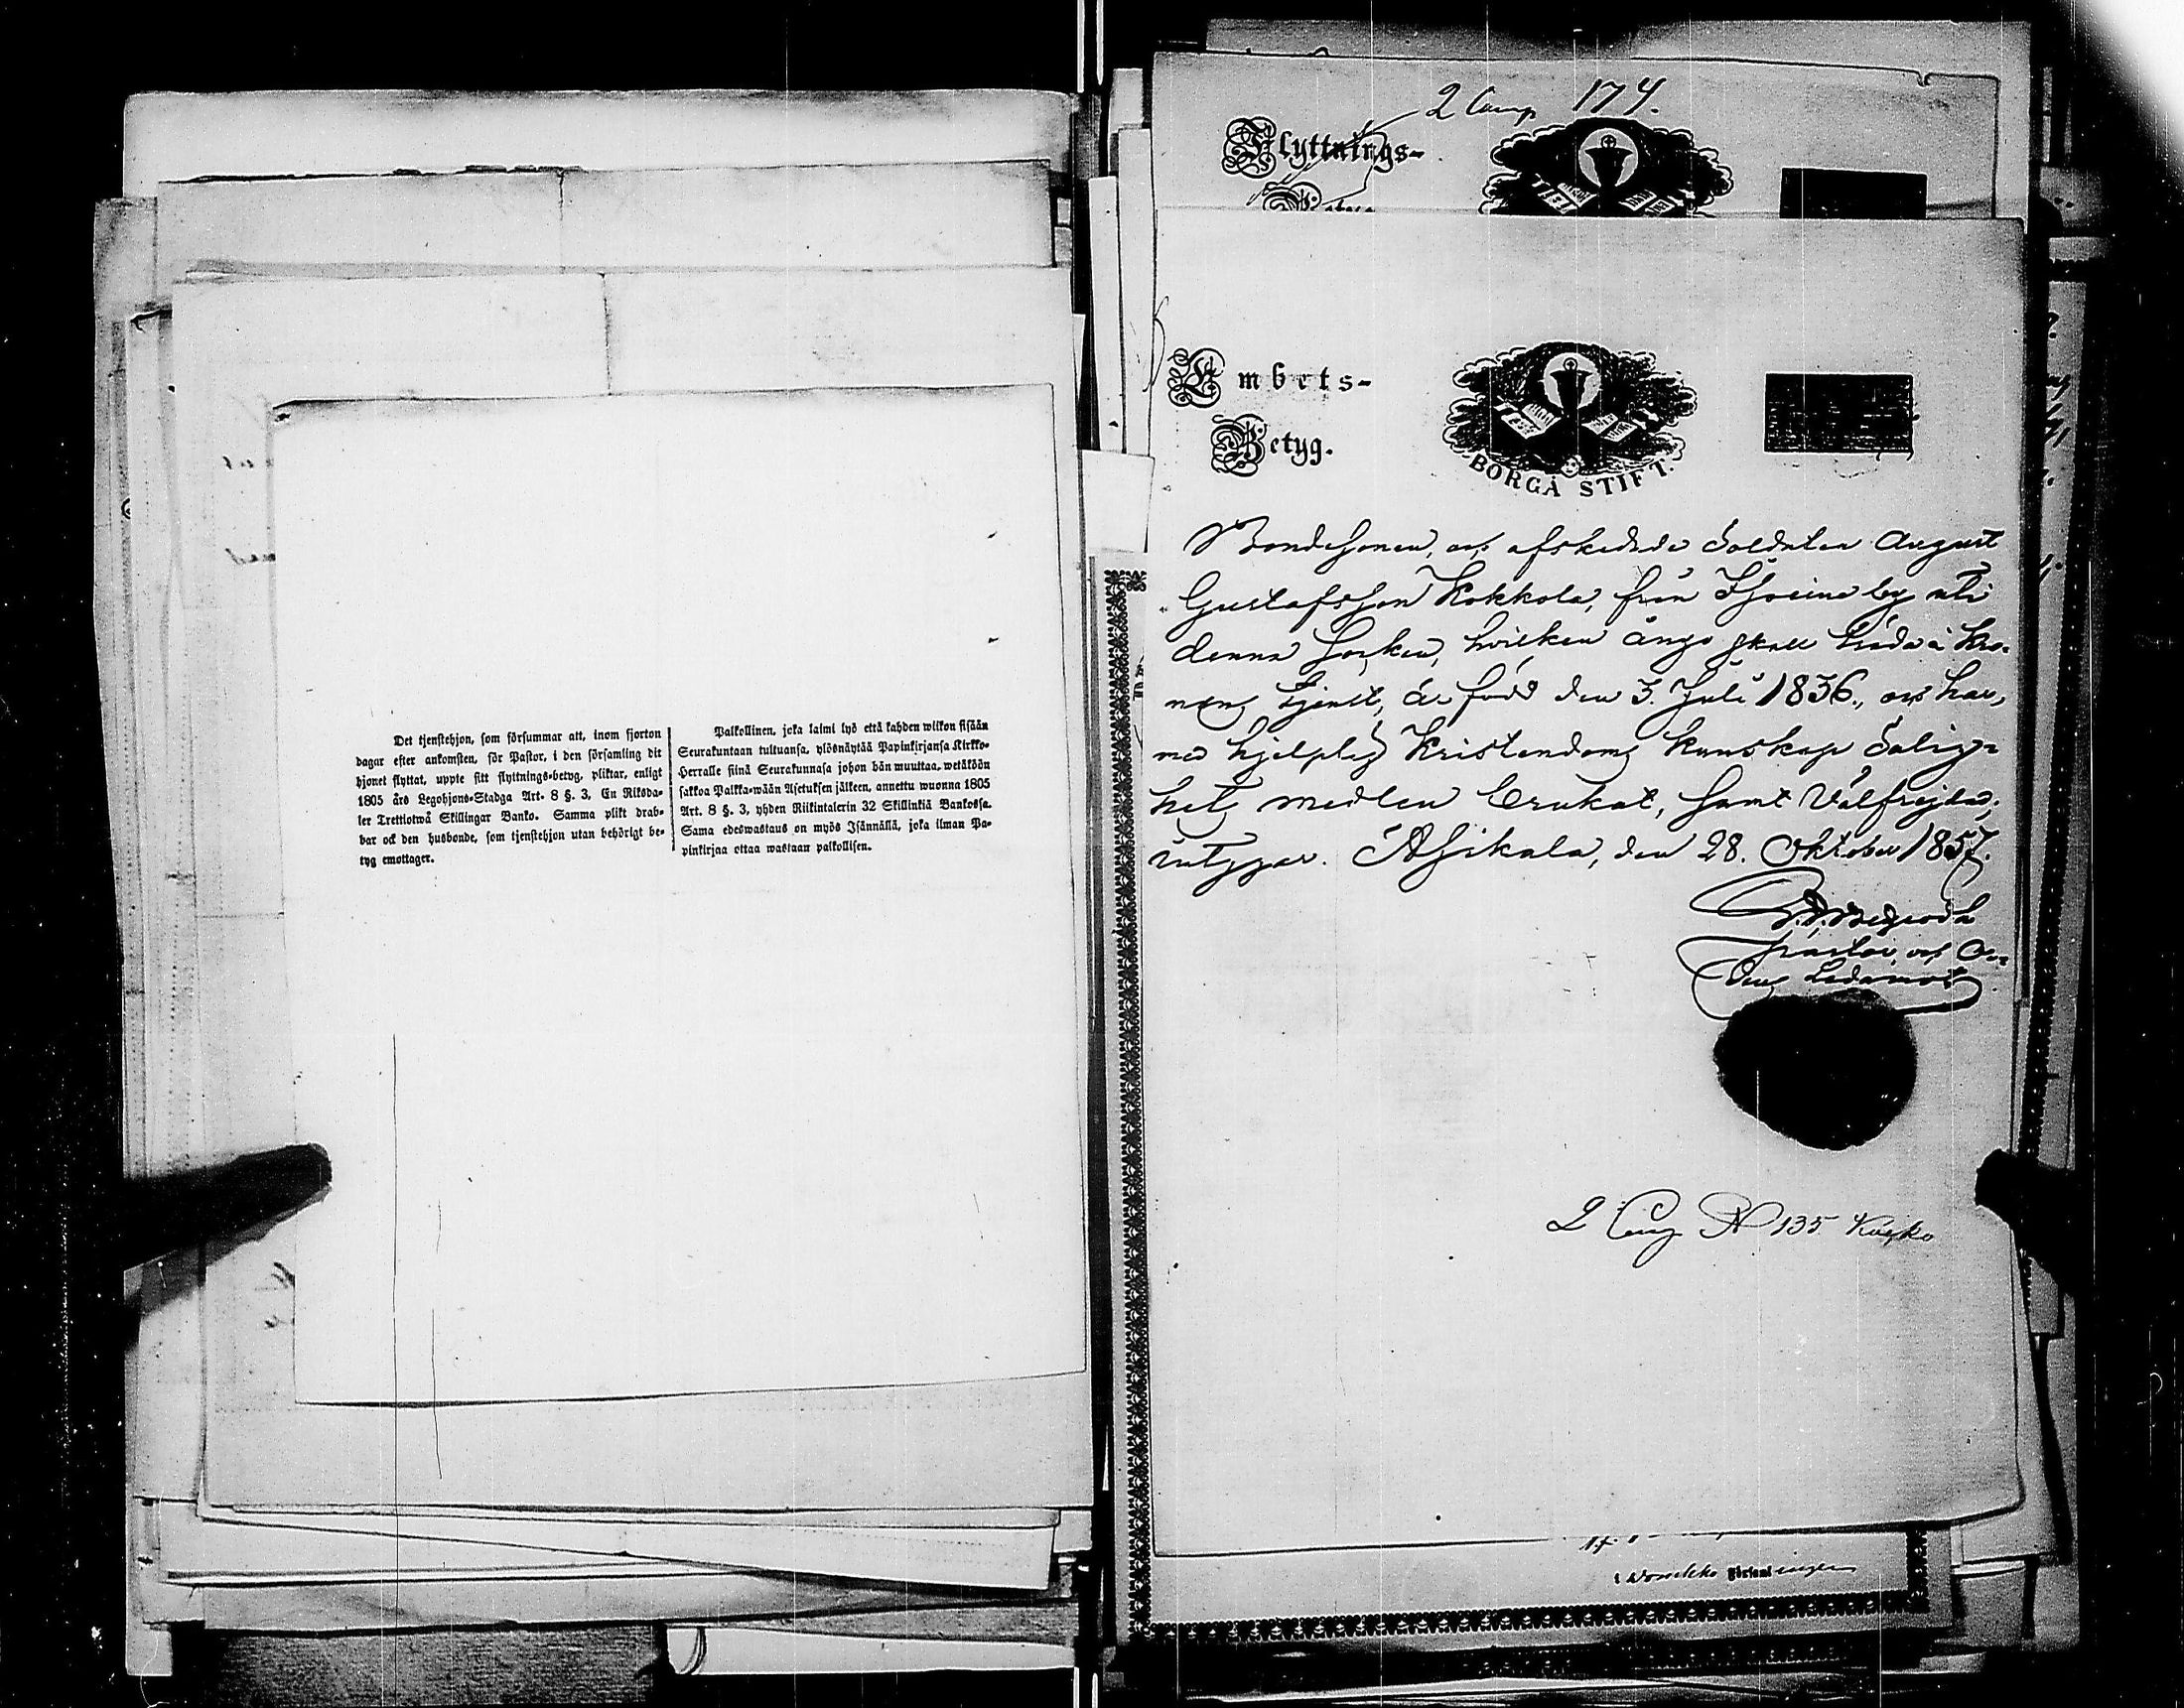 Det tjenstehjon, som försummar att, inom fjorton
dagar efter ankomsten, för Pastor, i den församling dit
hjonet flyttat, uppte sitt flyttnings-betyg, pliktar, enligt
1805 års Legohjons-Stadga Art. 8 §. 3, En Riksda-
ler Trettiotwå Skillingar Banko. Samma plikt drab-
bar ock den husbonde, som tjenstehjon utan behörigt be-
tyg emottager.
Palkollinen, joka laimi lyö että kahden wiikon sisään
Seurakuntaan tultuansa, ylösnäytää Papinkirjansa Kirkko-
Herralle siinä Seurakunnasa johon hän muuttaa, wetäköön
sakkoa Palkka-wään Asetuksen jälkeen, annettu wuonna 1805
Art. 8 §. 3, yhden Riikintalerin 32 Skillinkiä Bankossa.
Sama edeswastaus on myös Isännällä, joka ilman Pa-
pinkirjaa ottaa wastaan palkollisen.
2 Comp 174.
Flyttnings-
Embets-
Betyg.
BORGÅ STIFT.
Bondesonen, och afskedade Soldaten August
Gustafsson Kokkola, från by uti
denna Socken, hvilken ånyo skall träda i Kro-
nans tjenst, är född den 3. Juli 1836., och har,
med hjelplig Kristendoms kunskap Salig-
hets medlen brukat, samt Välfrejda,
intygar. Asikala, den 28. Oktober 1857.
Pastor och
Ledamot
2 Comp N 135 Kosko
Församlingen